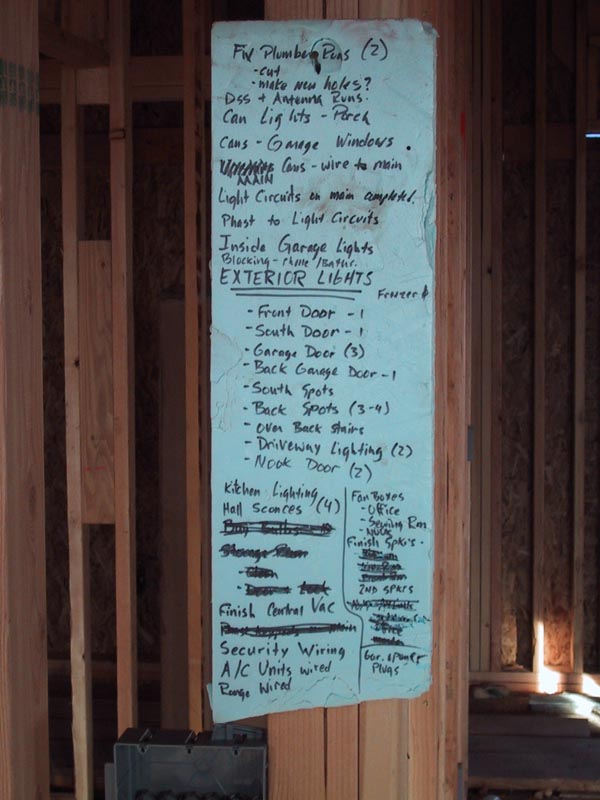 Fix Plumber Runs (2)
- cut
- make new holes?
DSS + Antenna Runs.
Can Lights - Porch
Cans - Garage Windows
Cans - wire to main
MAIN
Light Circuits on main completed.
Phast to Light Circuits
Inside Garage Lights
Blocking - Phone / Bathr.
EXTERIOR LIGHTS
Freezer
- Front Door - 1
- South Door - 1
- Garage Door (3)
- Back Garage Door - 1
- South Spots
- Back Spots (3-4)
- Over Back Stairs
- Driveway Lighting (2)
- Nook Door (2)
Kitchen Lighting
Hall Sconces (4)
Finish Central Vac
Security Wiring
A/C Units wired
Range Wired
Fan Boxes
- Office
- Sewing Rm
- Nook
Finish Spkrs -
2ND SPKRS
Gar. opener
Plugs